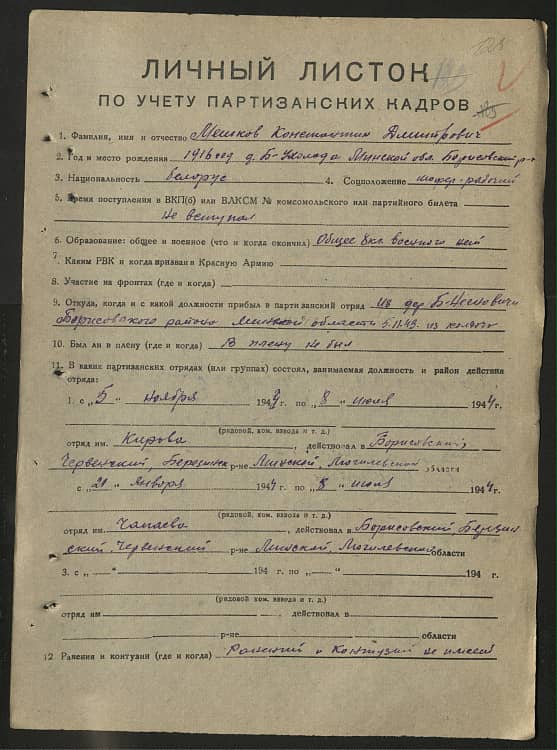 ЛИЧНЫЙ ЛИСТОК
ПО УЧЕТУ ПАРТИЗАНСКИХ КАДРОВ
1. Фамилия, имя и отчество Мешков Константин Дмитрович
2. Год и место рождения 1916 год д. Б-Ухолода Минской обл. Борисовский р-н
3. Национальность белорус 4. Соцположение шофер-рабочий
5. Время поступления в ВКП(б) или ВЛКСМ № комсомольского или партийного билета
Не вступал
6. Образование: общее и военное (что и когда окончил) Общее 8кл военного нет
7. Каким РВК и когда призван в Красную Армию
8. Участие на фронтах (где и когда)
9. Откуда, когда и с какой должности прибыл в партизанский отряд Из дер
Борисовского района Минской области 5.11.43. из
10. Был ли в плену (где и когда) В плену не был
11. В каких партизанских отрядах (или группах) состоял, занимаемая должность и район действия
отряда:
1. с „5" ноября 194 г. по „8" июля 1944 г.
(рядовой, ком. взвода и т. д.)
отряд им. Кирова, действовал в Борисовский,
Червенский, р-не Минской, Могилевской области
с „21" января 1944 г. по „8" июля 1944 г.
(рядовой, ком. взвода и т. д.)
отряд им. Чапаева, действовал в Борисовский
Червенский р-не Минской, Могилевской области
3. с „ " 194 г. по „ " 194 г.
(рядовой, ком. взвода и т. д.)
отряд им действовал в
р-не области
12. Ранения и контузии (где и когда) Ранений и Контузий не имеет